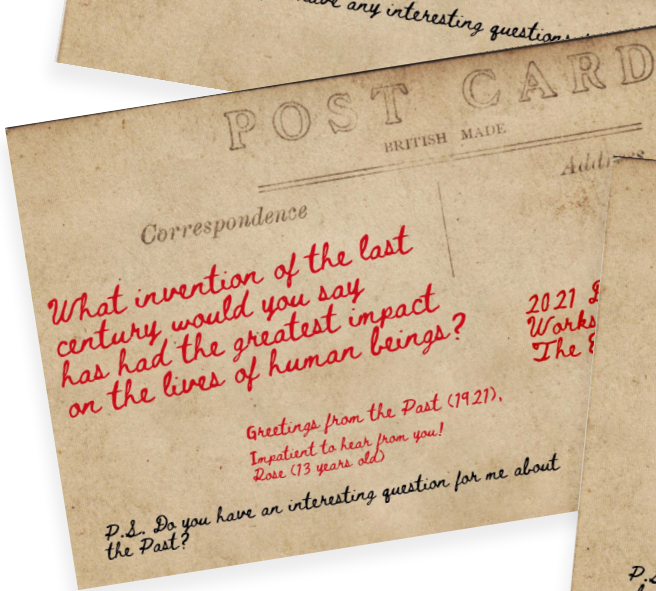 any interesting questions
POST CARD
BRITISH MADE
Correspondence
What invention of the last
century would you say
has had the greatest impact
on the lives of human beings?
2021
The
Greetings from the Past (1921),
Impatient to hear from you!
Rose (13 years old)
P.S. Do you have an interesting question for me about
the Past?